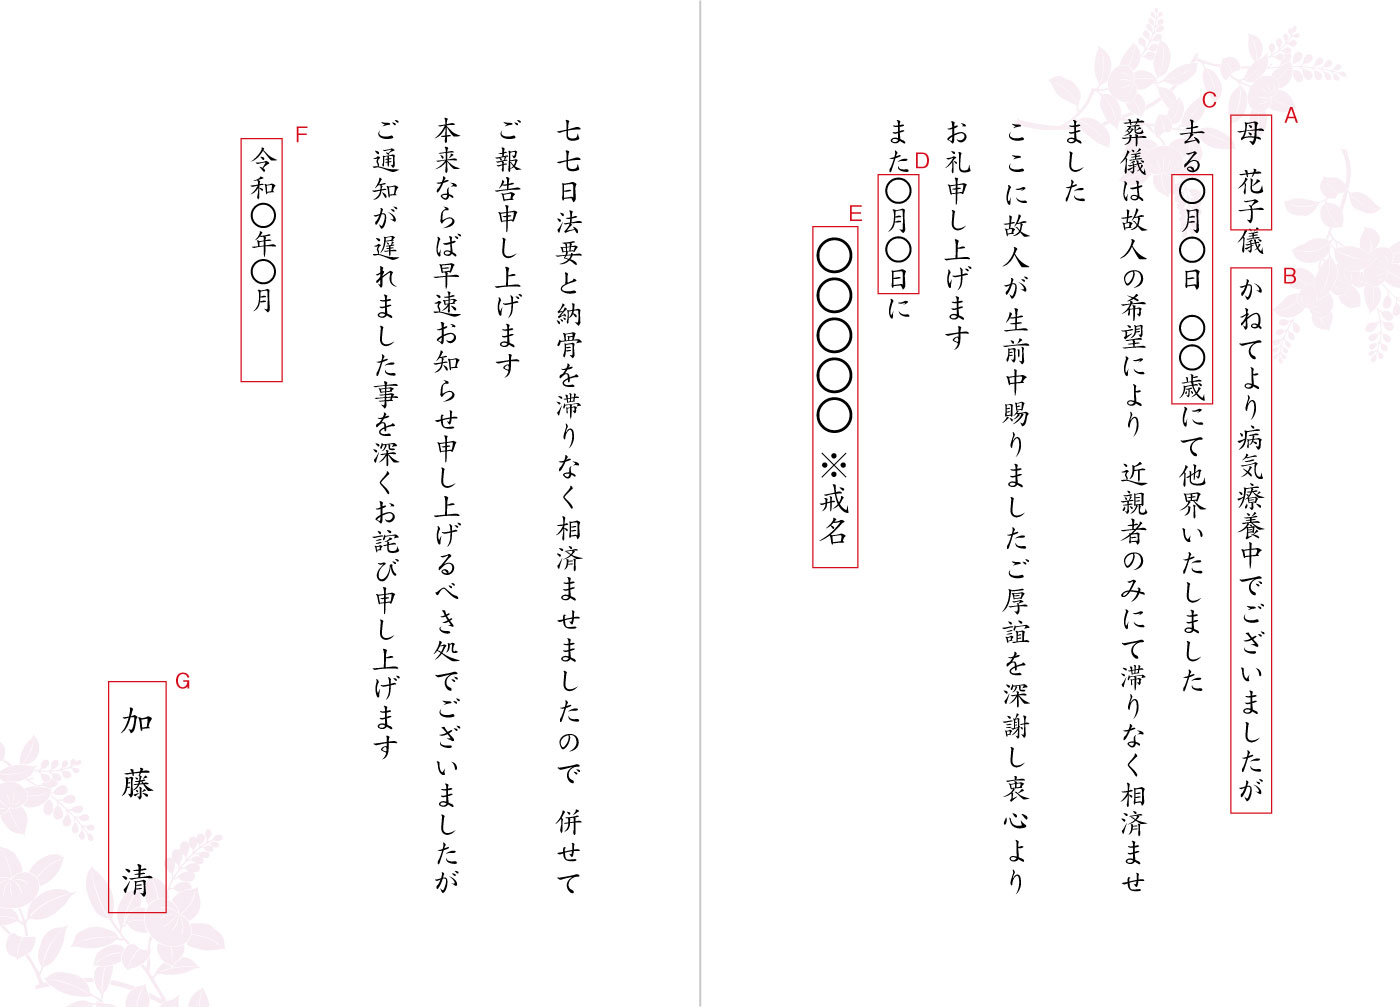 A
母 花子儀 かねてより病気療養中でございましたが
B
C
去る〇月〇日 〇〇歳にて他界いたしました
葬儀は故人の希望により 近親者のみにて滞りなく相済ませ
ました
ここに故人が生前中賜りましたご厚誼を深謝し衷心より
お礼申し上げます
D
また〇月〇日に
E
〇〇〇〇〇 ※戒名
七七日法要と納骨を滞りなく相済ませましたので 併せて
ご報告申し上げます
本来ならば早速お知らせ申し上げるべき処でございましたが
ご通知が遅れました事を深くお詫び申し上げます
F
令和〇年〇月
G
加藤 清